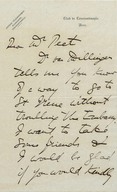 Dear Mr Peet
Dr von Dillinger
tells me you know
of a way to go to
St Irene without
troubling the Embassy
I want to take
some friends &
I would be glad
if you would kindly